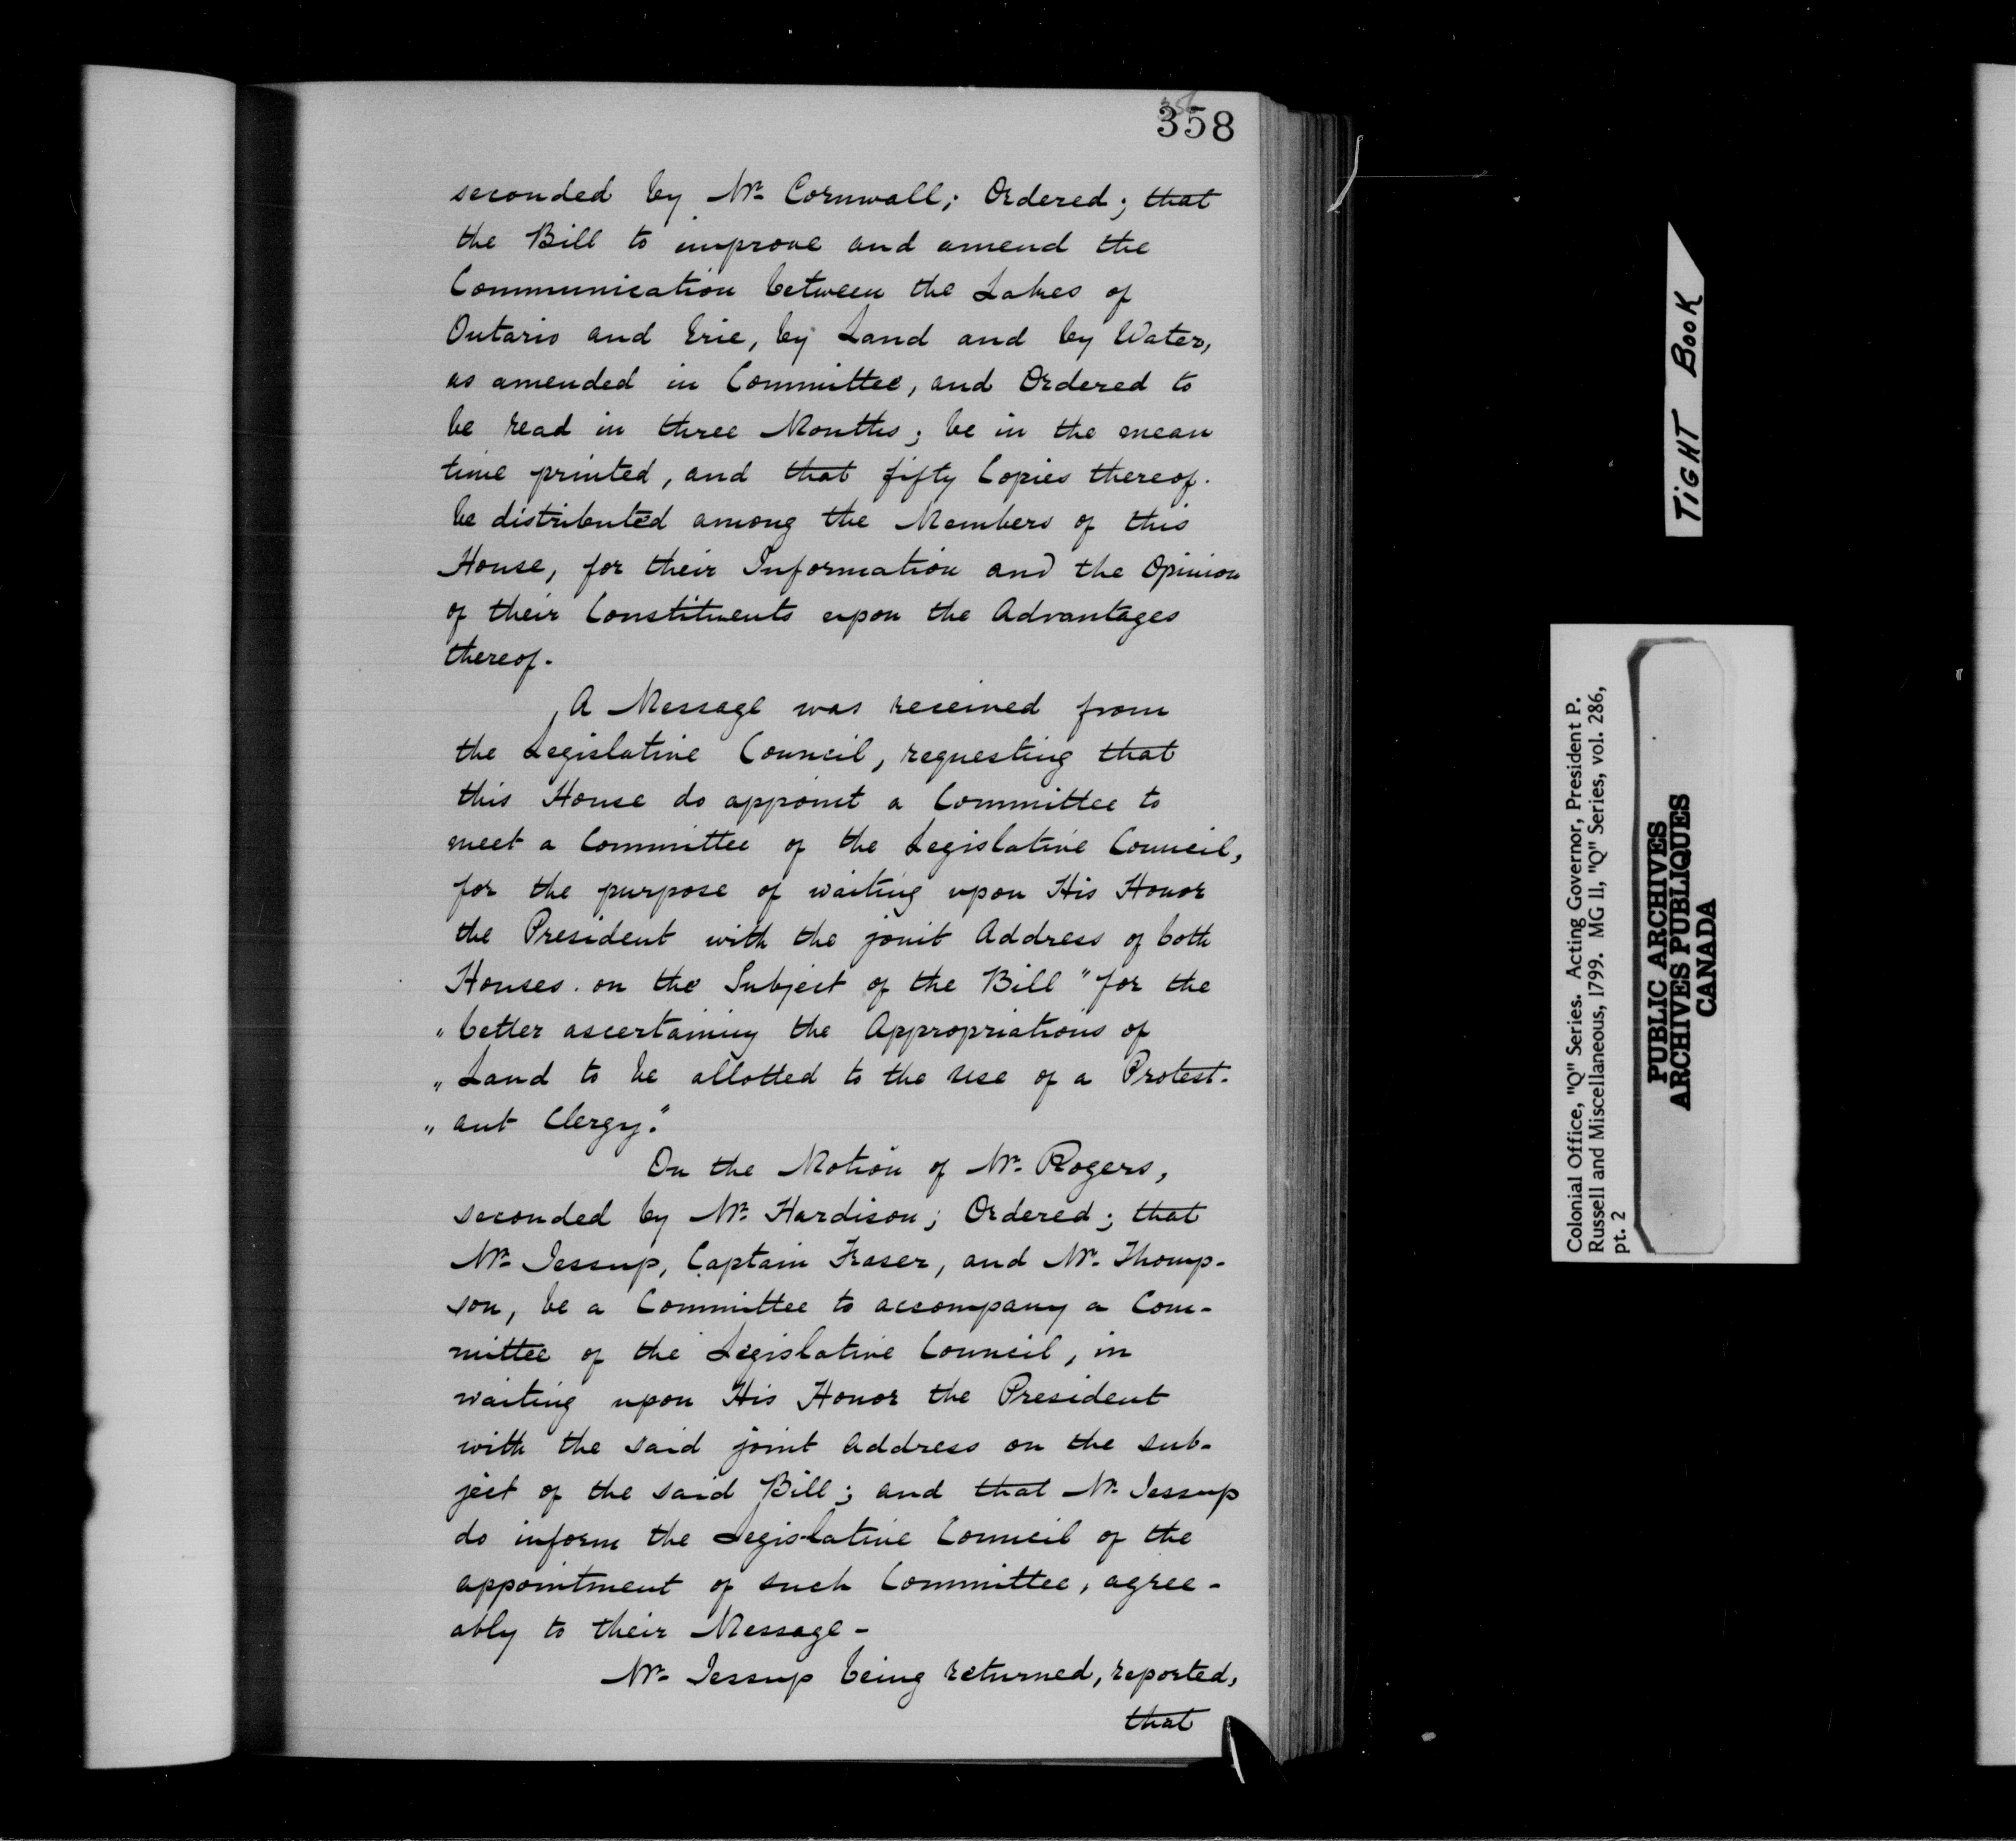 358
seconded by Mr. Cornwall; Ordered; that
the Bill to improve and amend the
Communication between the Lakes of
Ontario and Erie, by Land and by Water,
as amended in Committee, and Ordered to
be read in three Months; be in the mean
time printed, and that fifty Copies thereof.
be distributed among the Members of this
House, for their Information and the Opinion
of their Constituents upon the Advantages
thereof.
A Message was received from
the Legislative Council, requesting that
this House do appoint a Committee to
meet a Committee of the Legislative Council,
for the purpose of waiting upon His Honor
the President with the joint Address of both
Houses. on the Subject of the Bill "for the
" better ascertaining the Appropriations of
" Land to be allotted to the use of a Protest-
" ant Clergy."
On the Motion of Mr. Rogers,
seconded by Mr. Hardison; Ordered; that
Mr. Jessup, Captain Fraser, and Mr. Thomp-
son, be a Committee to accompany a Com-
mittee of the Legislative Council, in
waiting upon His Honor the President
with the said joint Address on the sub-
ject of the said Bill; and that Mr. Jessup
do inform the Legislative Council of the
appointment of such Committee, agree-
ably to their Message -
Mr. Jessup being returned, reported,
that
TIGHT BOOK
Colonial Office, "Q" Series. Acting Governor, President P.
Russell and Miscellaneous, 1799. MG 11, "Q" Series, vol. 286,
pt. 2
PUBLIC ARCHIVES
ARCHIVES PUBLIQUES
CANADA